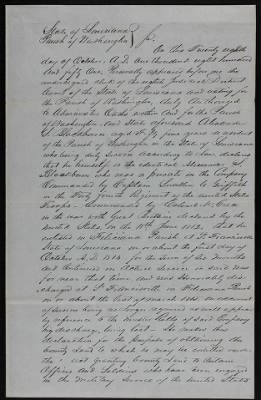 State of Louisiana
Parish of Washington
On this Twenty eighth
day of October, A.D. One thousand eight hundred
and fifty One, Personally appeared before me the
undersigned Clerk of the eighth Judicial District
Court of the State of Louisiana and acting for
the Parish of Washington, duly Authorized
to Administer Oaths within and for the Parish
of Washington and State aforesaid Alexander
aged years a resident
of the Parish of Washington in the State of Louisiana
who being duly Sworn According to law, declares
that he himself is the identical Alexander
who was a private in the Company
Commanded by Captain
in the Forty fourth Regiment of the United States
Troops Commanded by Colonel
in the war with Great Britain declared by the
United States, on the 18th June 1812, that he
enlisted in Feliciana Parish at St Francisville
State of Louisiana on or about the first day of
October A.D. 1814 for the term of
and Continued in Actual Service in said war
for near that time, and was Honorably dis-
charged at St Francisville, in Feliciana Parish
on or about the last of March 1815. on account
of services being no longer required as will appear
by reference to the Muster Rolls of said Company
his discharge, being lost. He makes this
declaration for the purpose of obtaining the
bounty Land to which he may be entitled under
the "act Granting bounty Land to Certain
Officers and Soldiers who have been engaged
in the Military Service of the United States